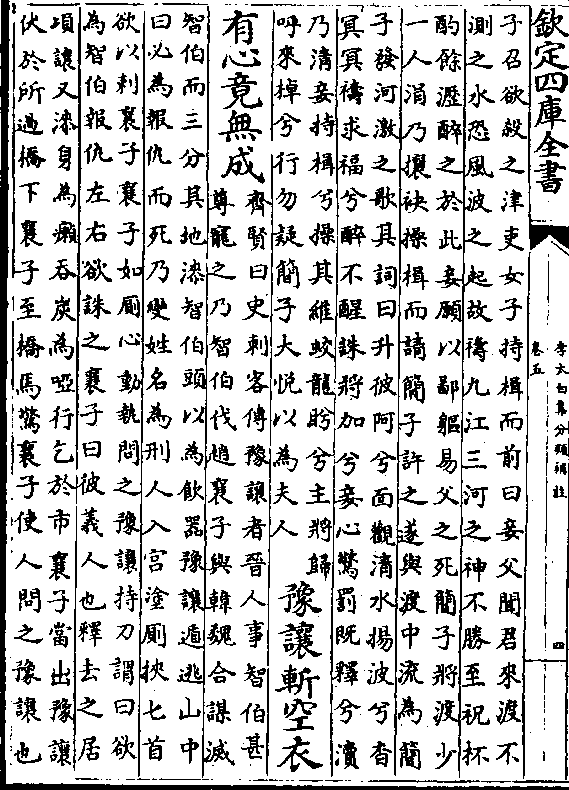 欽定四庫全書
李太白集分類補註
卷五
四
子召欲殺之津吏女子持楫而前曰妾父聞君來渡不
測之水恐風波之起故禱九江三河之神不勝至祝杯
酌餘瀝醉之於此妾願以鄙軀易父之死簡子將渡少
一人涓乃攘袂操楫而請簡子許之遂與渡中流為簡
子發河激之歌其詞曰升彼阿兮面觀清水揚波兮杳
冥冥禱求福兮醉不醒誅將加兮妾心驚罰既釋兮瀆
乃清妾持楫兮操其維蛟龍盻兮主將歸
呼來棹兮行勿疑簡子大悅以為夫人
豫讓斬空衣
有心竟無成
齊賢曰史刺客傳豫讓者晉人事智伯甚
尊寵之乃智伯伐趙襄子與韓魏合謀滅
智伯而三分其地漆智伯頭以為飲器豫讓遁逃山中
曰必為報仇而死乃變姓名為刑人入宮塗厠挾七首
欲以刺襄子襄子如厠心動執問之豫讓持刀謂曰欲
為智伯報仇左右欲誅之襄子曰彼義人也釋去之居
頃讓又漆身為癩吞炭為啞行乞於市襄子當出豫讓
伏於所過橋下襄子至橋馬驚襄子使人問之豫讓也